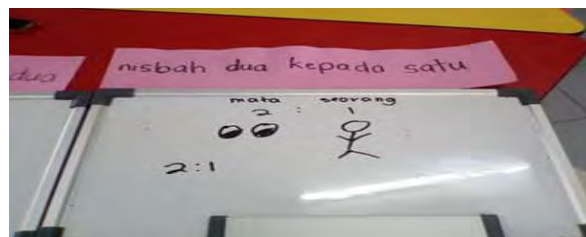 dua
nisbah dua kepada satu
mata seorang
2 : 1
2:1